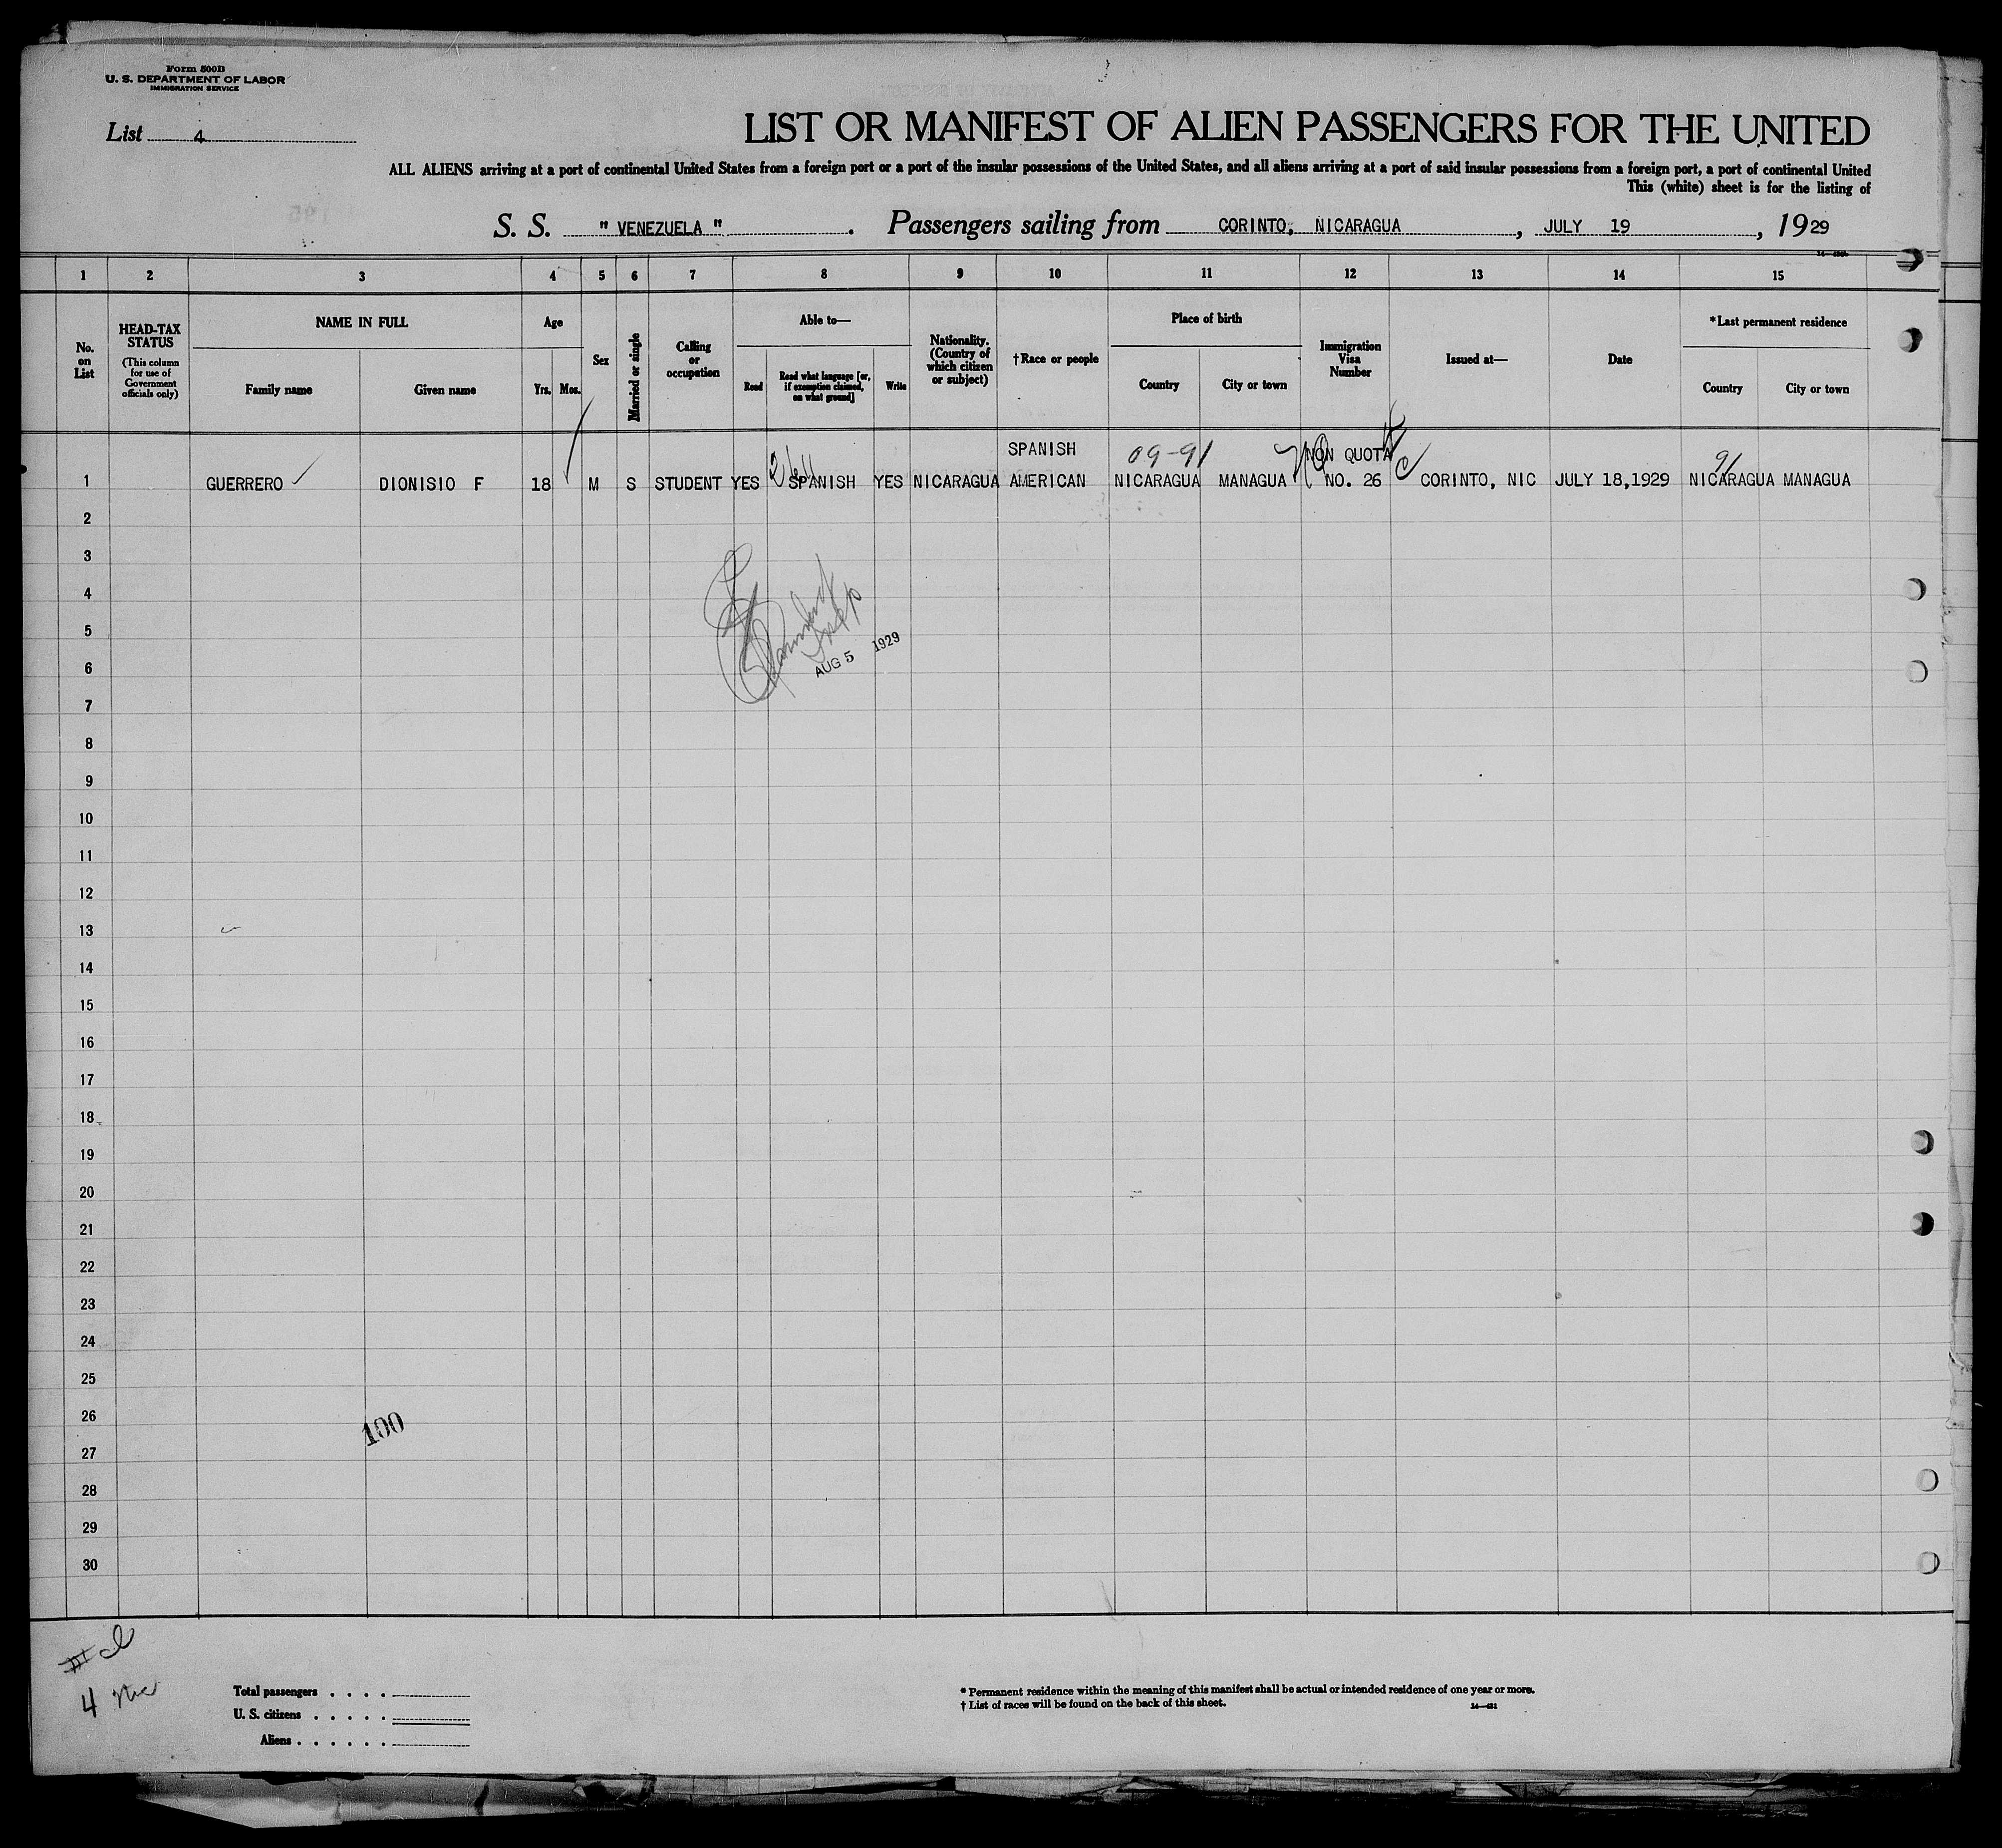 Form 500B
U. S. DEPARTMENT OF LABOR
IMMIGRATION SERVICE
List 4
LIST OR MANIFEST OF ALIEN PASSENGERS FOR THE UNITED
ALL ALIENS arriving at a port of continental United States from a foreign port or a port of the insular possessions of the United States, and all aliens arriving at a port of said insular possessions from a foreign port, a port of continental United
This (white) sheet is for the listing of
S. S. " VENEZUELA " . Passengers sailing from CORINTO, NICARAGUA , JULY 19 , 1929
1 2 3 4 5 6 7 8 9 10 11 12 13 14 15
No. on List
HEAD-TAX STATUS
(This column for use of Government officials only)
NAME IN FULL
Family name
Given name
Age
Yrs.
Mos.
Sex
Married or single
Calling or occupation
Able to—
Read
Read what language [or, if exemption claimed, on what ground]
Write
Nationality. (Country of which citizen or subject)
†Race or people
Place of birth
Country
City or town
Immigration Visa Number
Issued at—
Date
*Last permanent residence
Country
City or town
SPANISH 09-91 NON QUOTA 91
1 GUERRERO DIONISIO F 18 M S STUDENT YES SPANISH YES NICARAGUA AMERICAN NICARAGUA MANAGUA NO. 26 CORINTO, NIC JULY 18,1929 NICARAGUA MANAGUA
2
3
4
5
6
AUG 5 1929
7
8
9
10
11
12
13
14
15
16
17
18
19
20
21
22
23
24
25
26
100
27
28
29
30
4
Total passengers . . . .
U. S. citizens . . . . .
Aliens . . . . . .
* Permanent residence within the meaning of this manifest shall be actual or intended residence of one year or more.
† List of races will be found on the back of this sheet.